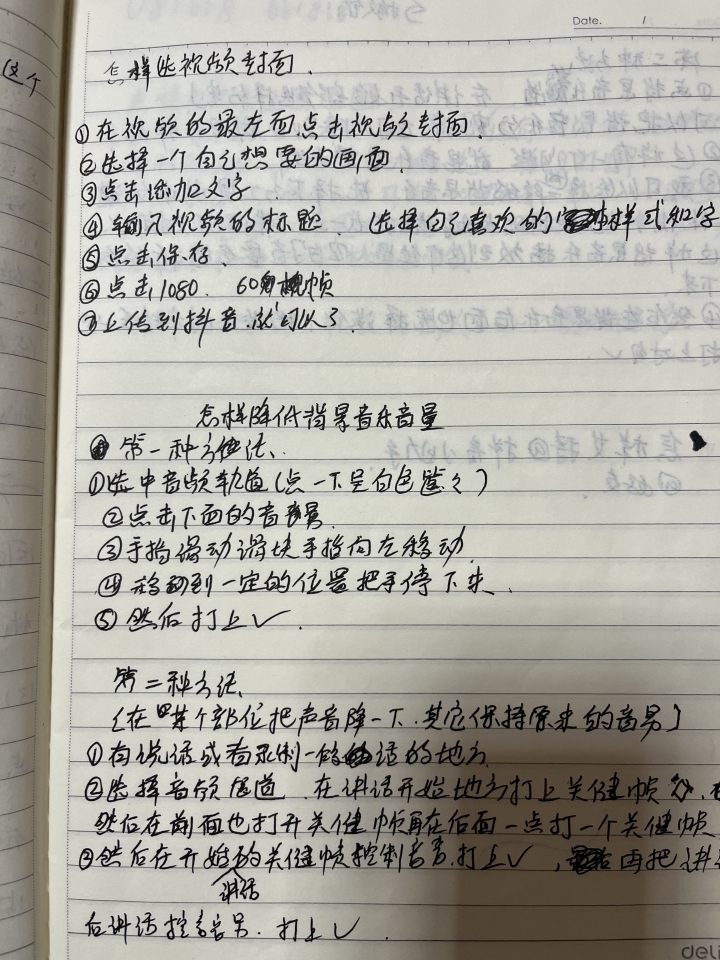 Date. /
这个
怎样做视频封面.
①在视频的最左面点击视频封面.
②选择一个自己想要的画面.
③点击添加文字
④输入视频的标题. 选择自己喜欢的样式和字
⑤点击保存.
⑥点击1080. 60帧
⑦上传到抖音.就可以了.
怎样降低背景音乐音量
第一种方法、
①选中音频轨道(点一下呈白色
②点击下面的音量.
③手指滑动滑块手指向左移动.
④移动到一定的位置把手停下来.
⑤然后打上✓.
第二种方法.
(在某个部位把声音降一下.其它保持原来的音
①有说话或者录制一段话的地方.
②选择音频 道 在讲话开始地方打上关键帧
然后在前面也打开关键帧再在后面一点打一个关键帧
③然后在开始的关键帧控制音 打上✓, 再把讲
讲话
后讲话控 音 . 打上✓.
deli